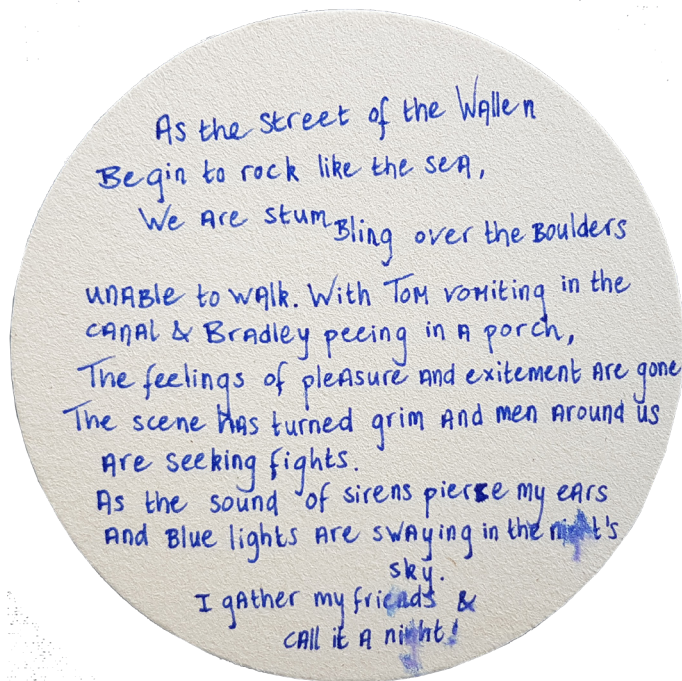 As the street of the Wallen
Begin to rock like the sea,
We are stumBling over the Boulders
unable to walk. With Tom vomiting in the
canal & Bradley peeing in a porch,
The feelings of pleasure and exitement are gone
The scene has turned grim and men around us
are seeking fights.
As the sound of sirens pierse my ears
and Blue lights are swaying in the night's
sky.
I gather my friends &
call it a night!